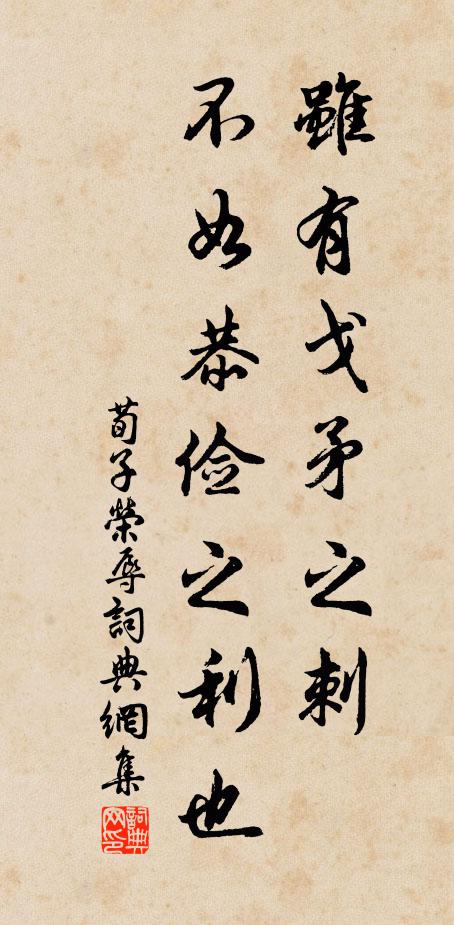 雖有戈矛之刺
不如恭儉之利也
荀子榮辱詞典網集
詞典网印